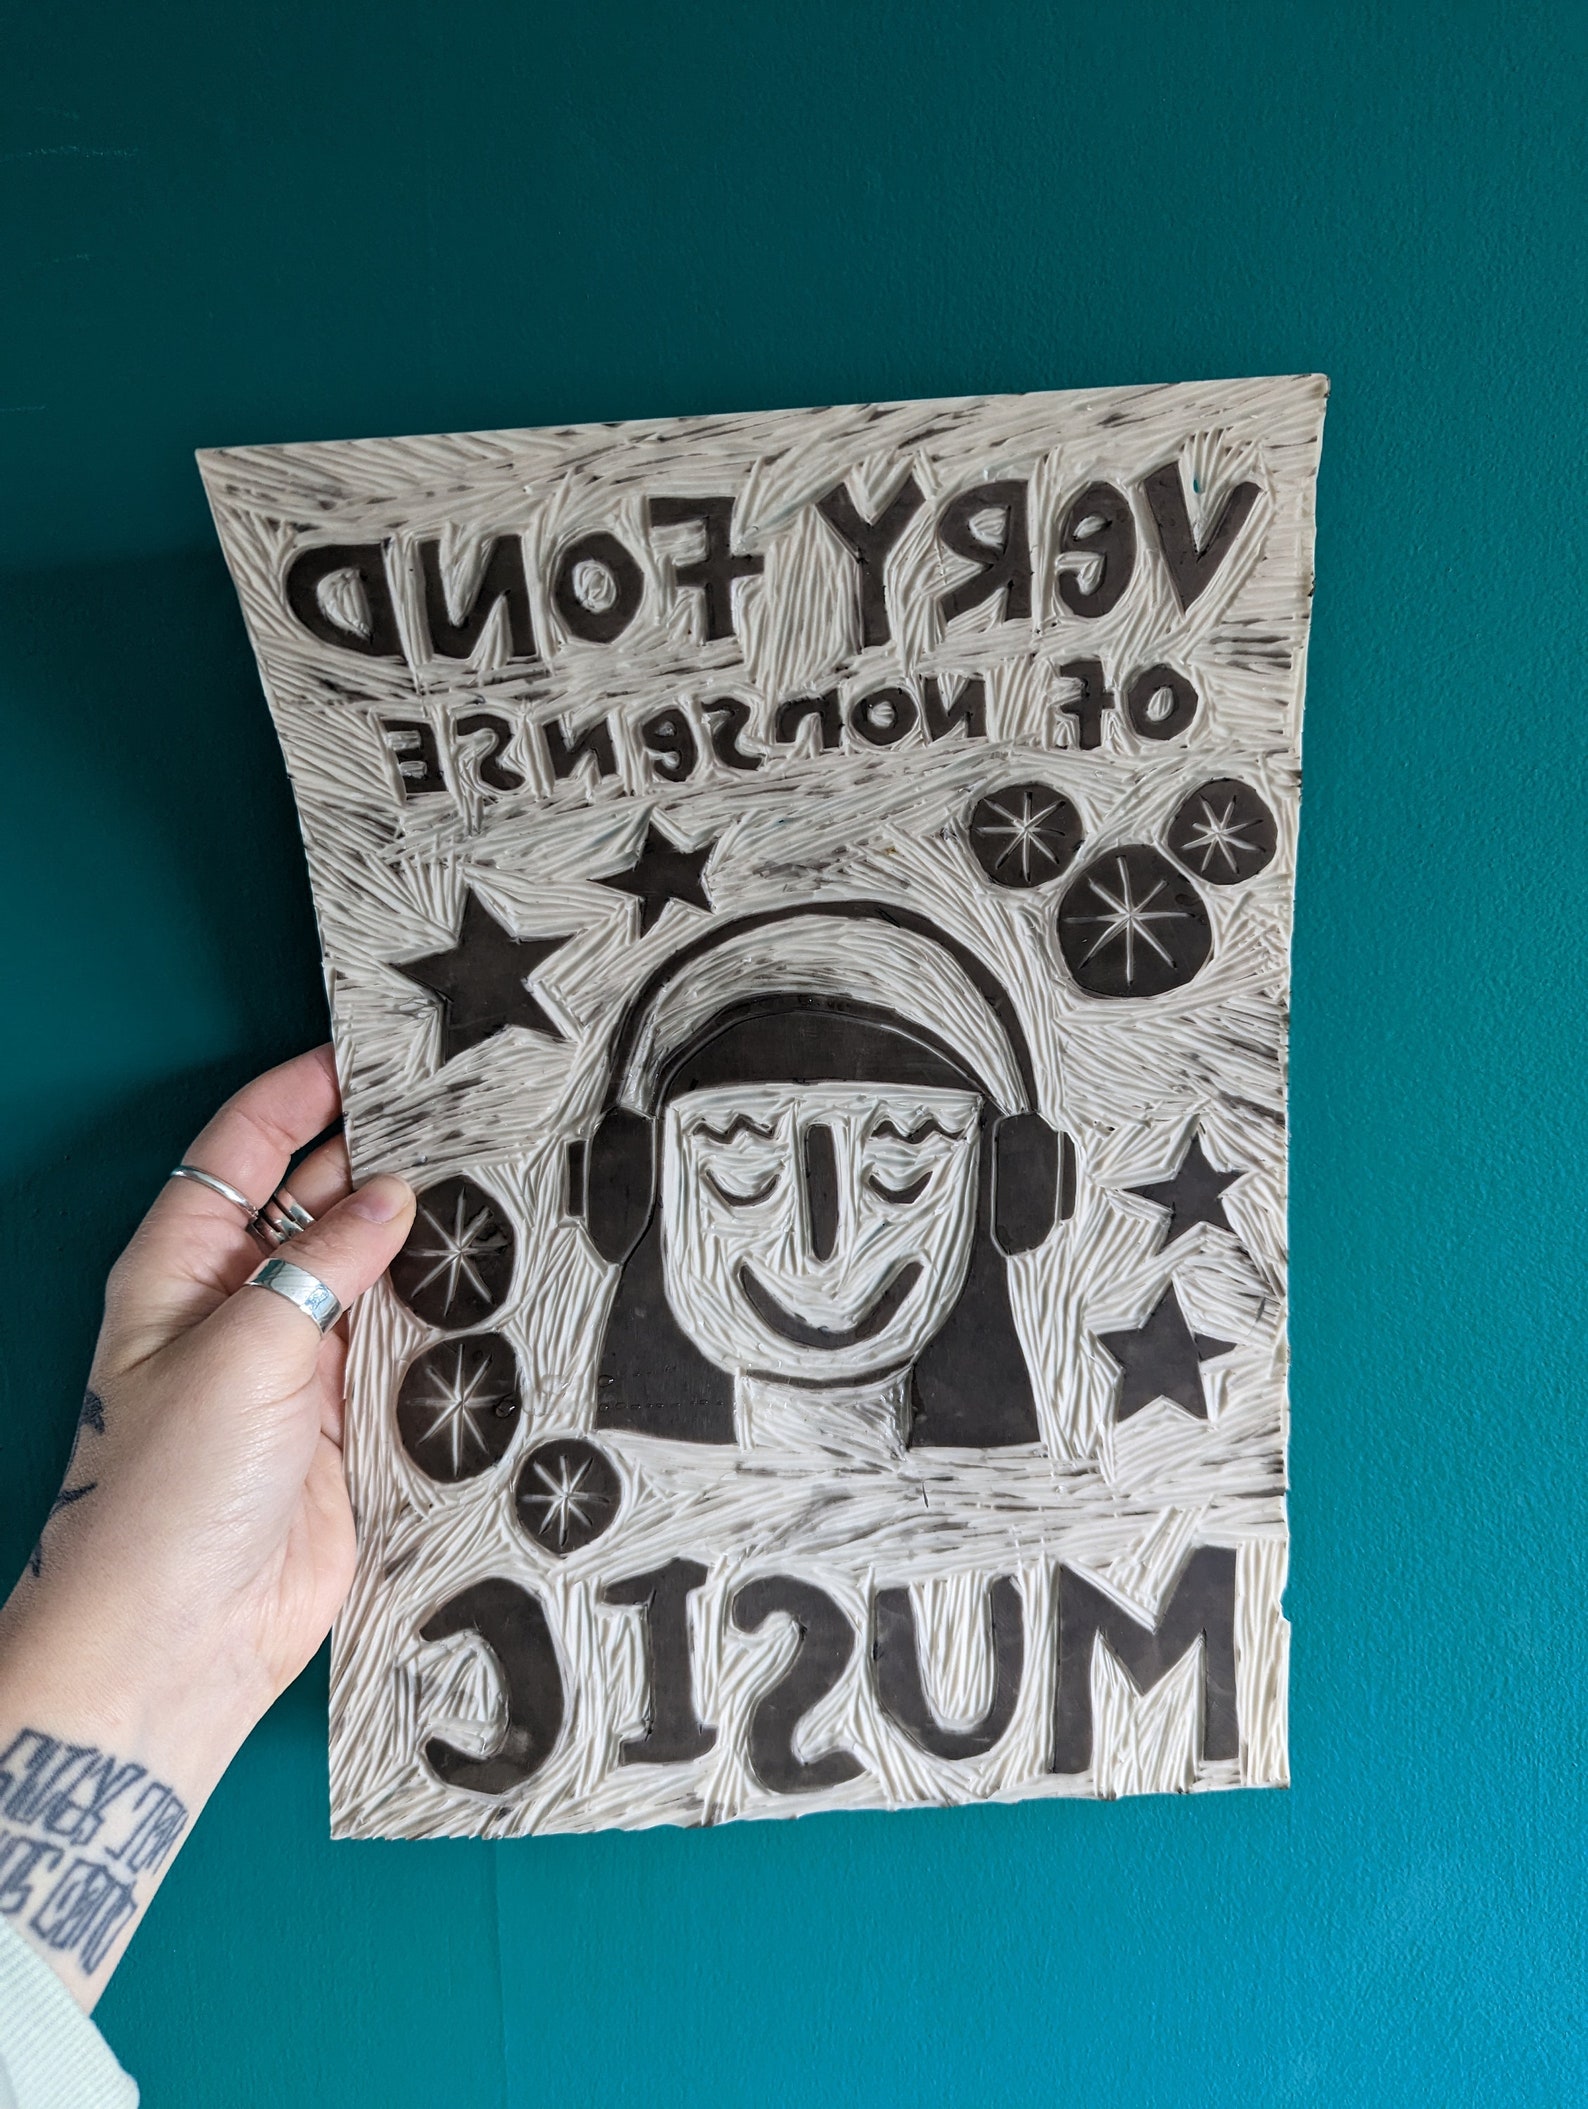 VeRY FOND
OF NONSeNSE
MUSIC